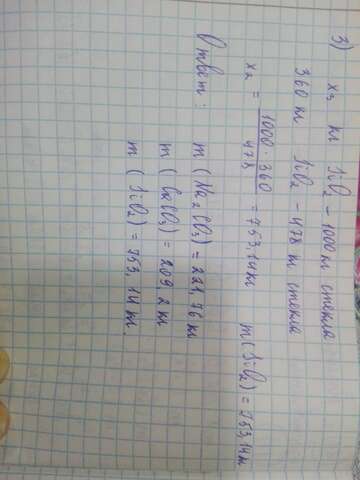 3) x₃ кг SiO₂ – 1000 кг стекла
360 кг SiO₂ – 478 кг стекла
x₂ = 1000·360 / 478 = 753,14 кг m(SiO₂) = 753,14 кг
Ответ: m(Na₂CO₃) = 221,76 кг
m(CaCO₃) = 209,2 кг
m(SiO₂) = 753,14 кг.